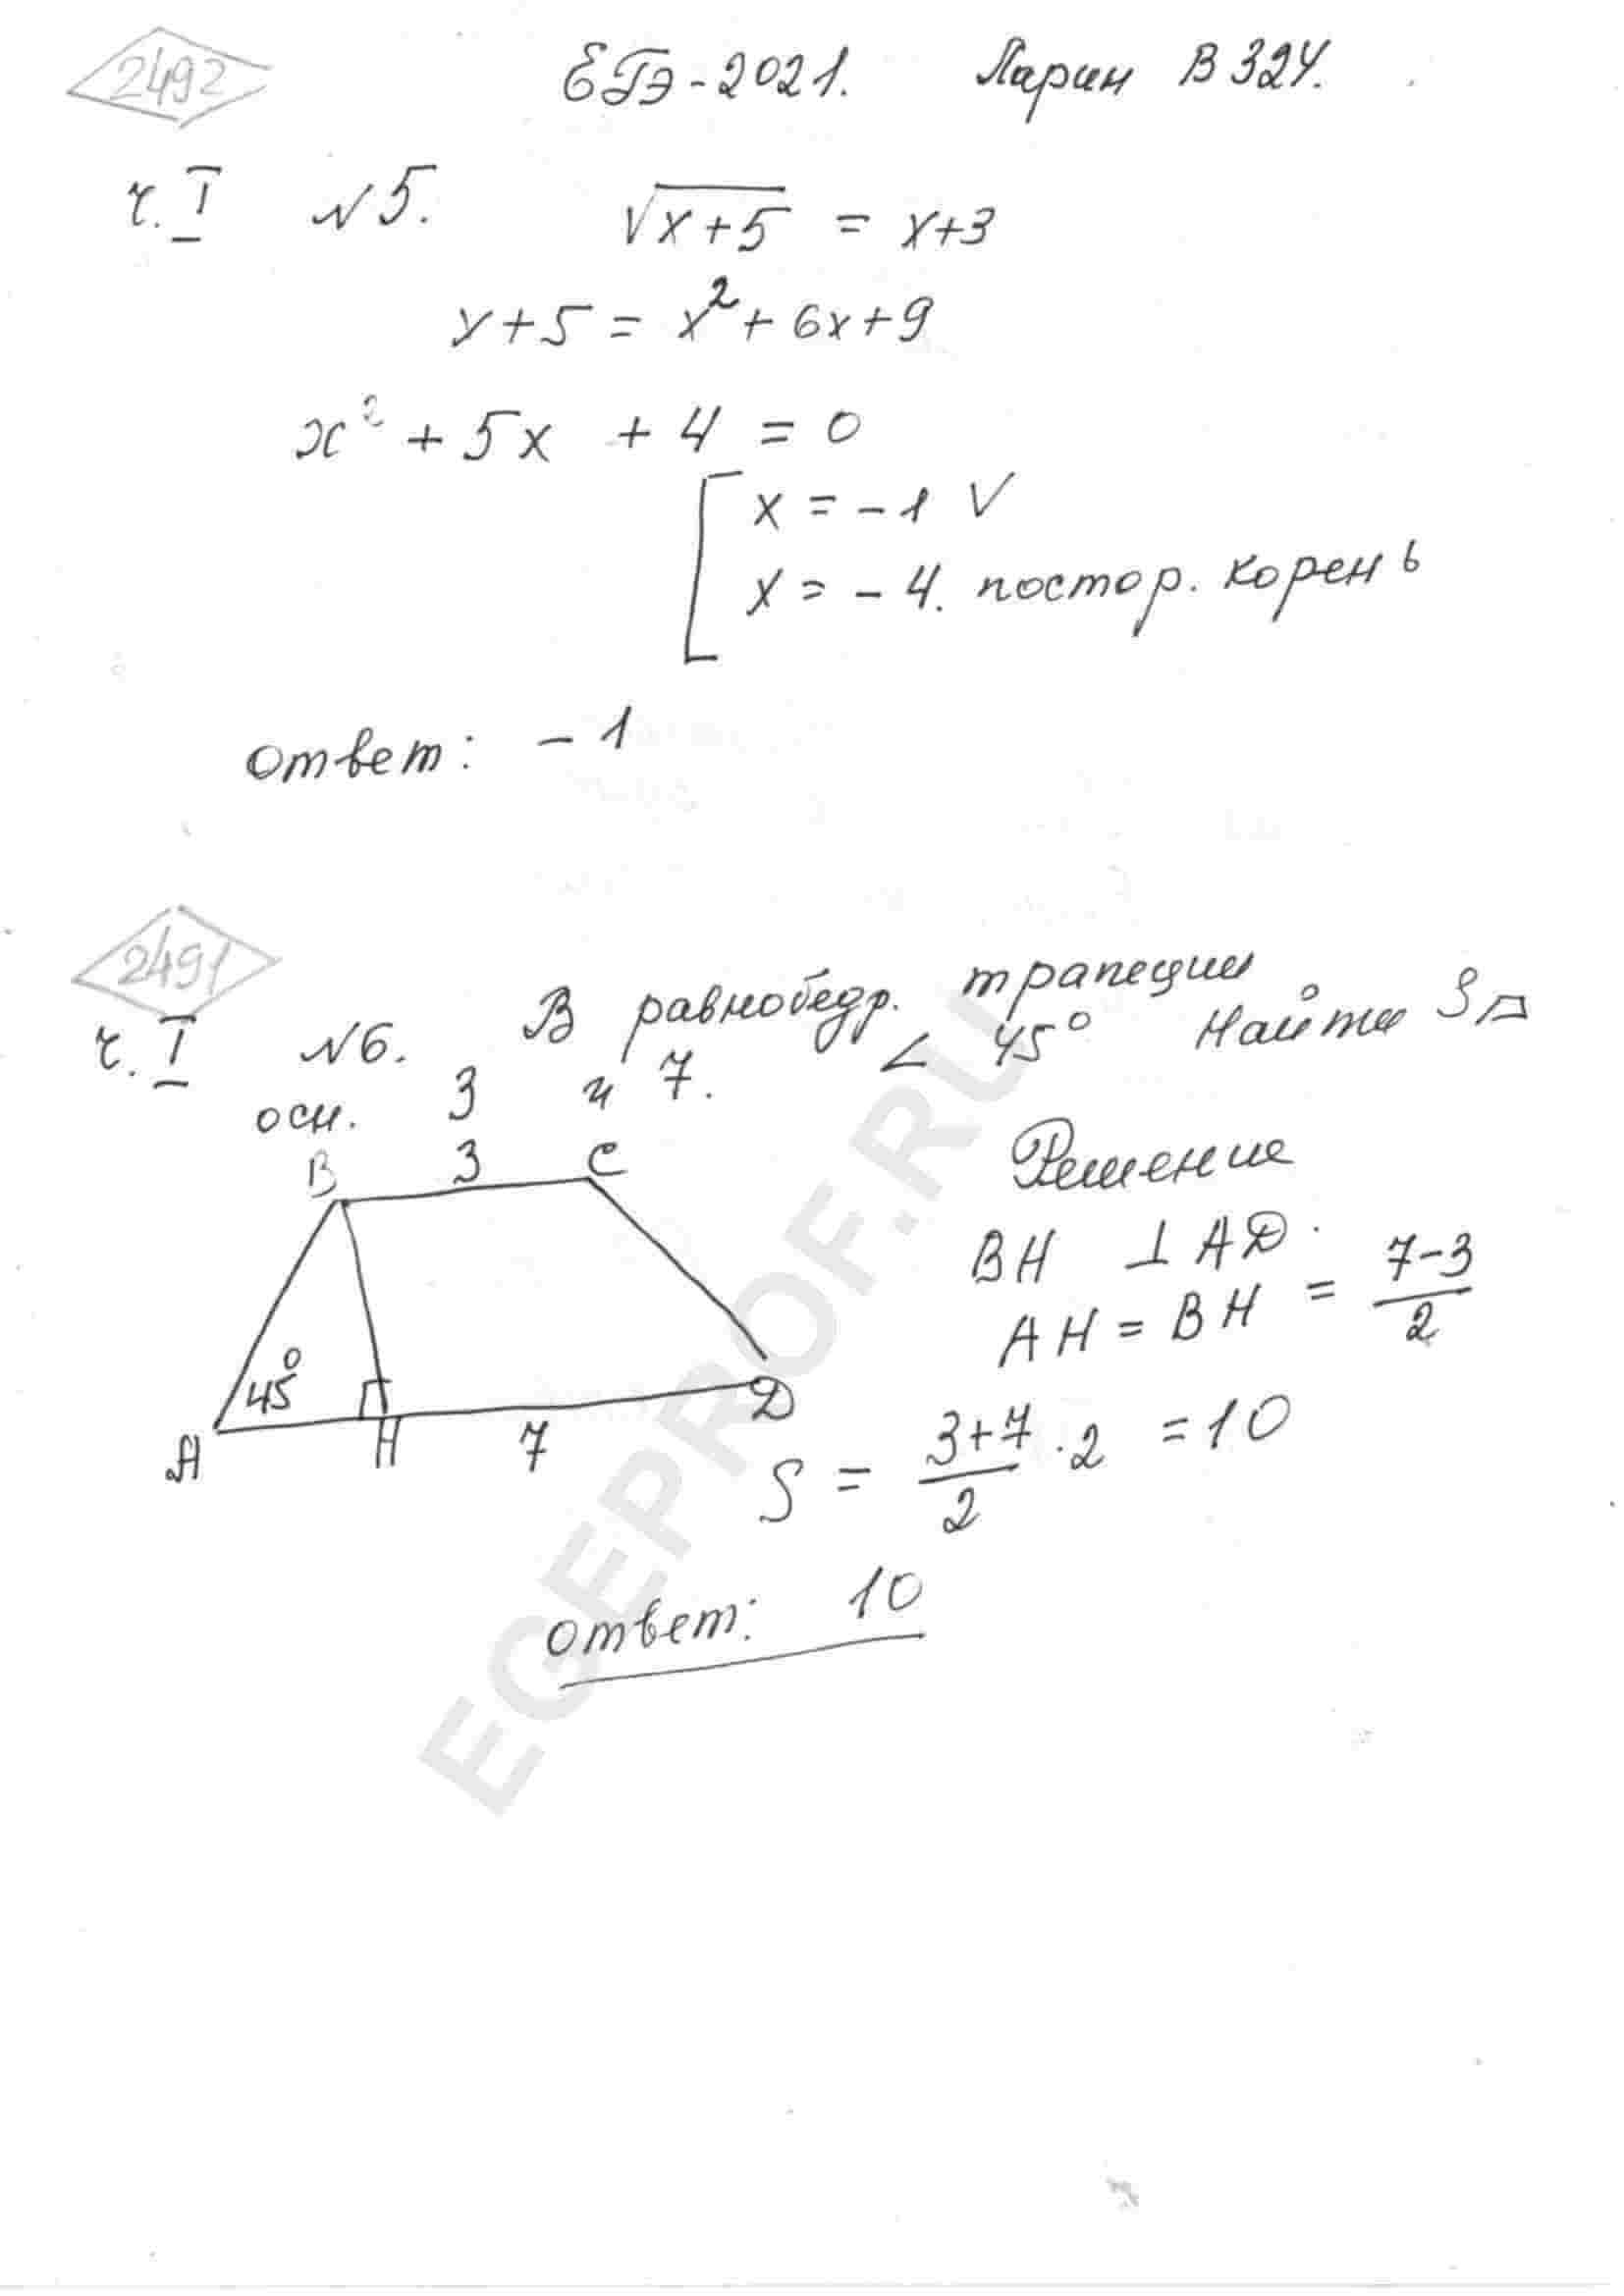 2492
ЕГЭ-2021. Ларин В 324.
ч. I №5. √x+5 = x+3
x+5 = x²+6x+9
x² + 5x + 4 = 0
x = -1 V
x = -4. постор. корень
ответ: -1
2491
ч. I №6. В равнобедр. трапеции
осн. 3 и 7. ∠ 45° Найти S⏢
B 3 C
Решение
BH ⊥ AD.
AH = BH = 7-3/2
45°
A H 7 D
S = 3+7/2 · 2 = 10
ответ: 10
EGEPROF.RU